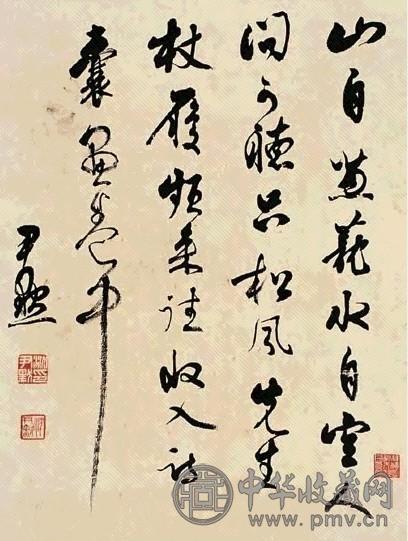 山自葱蘢水自空人
間可聽只松風先生
杖屨頻來往收入詩
囊畫卷中
尹默
中华收藏网
www.pmv.cn